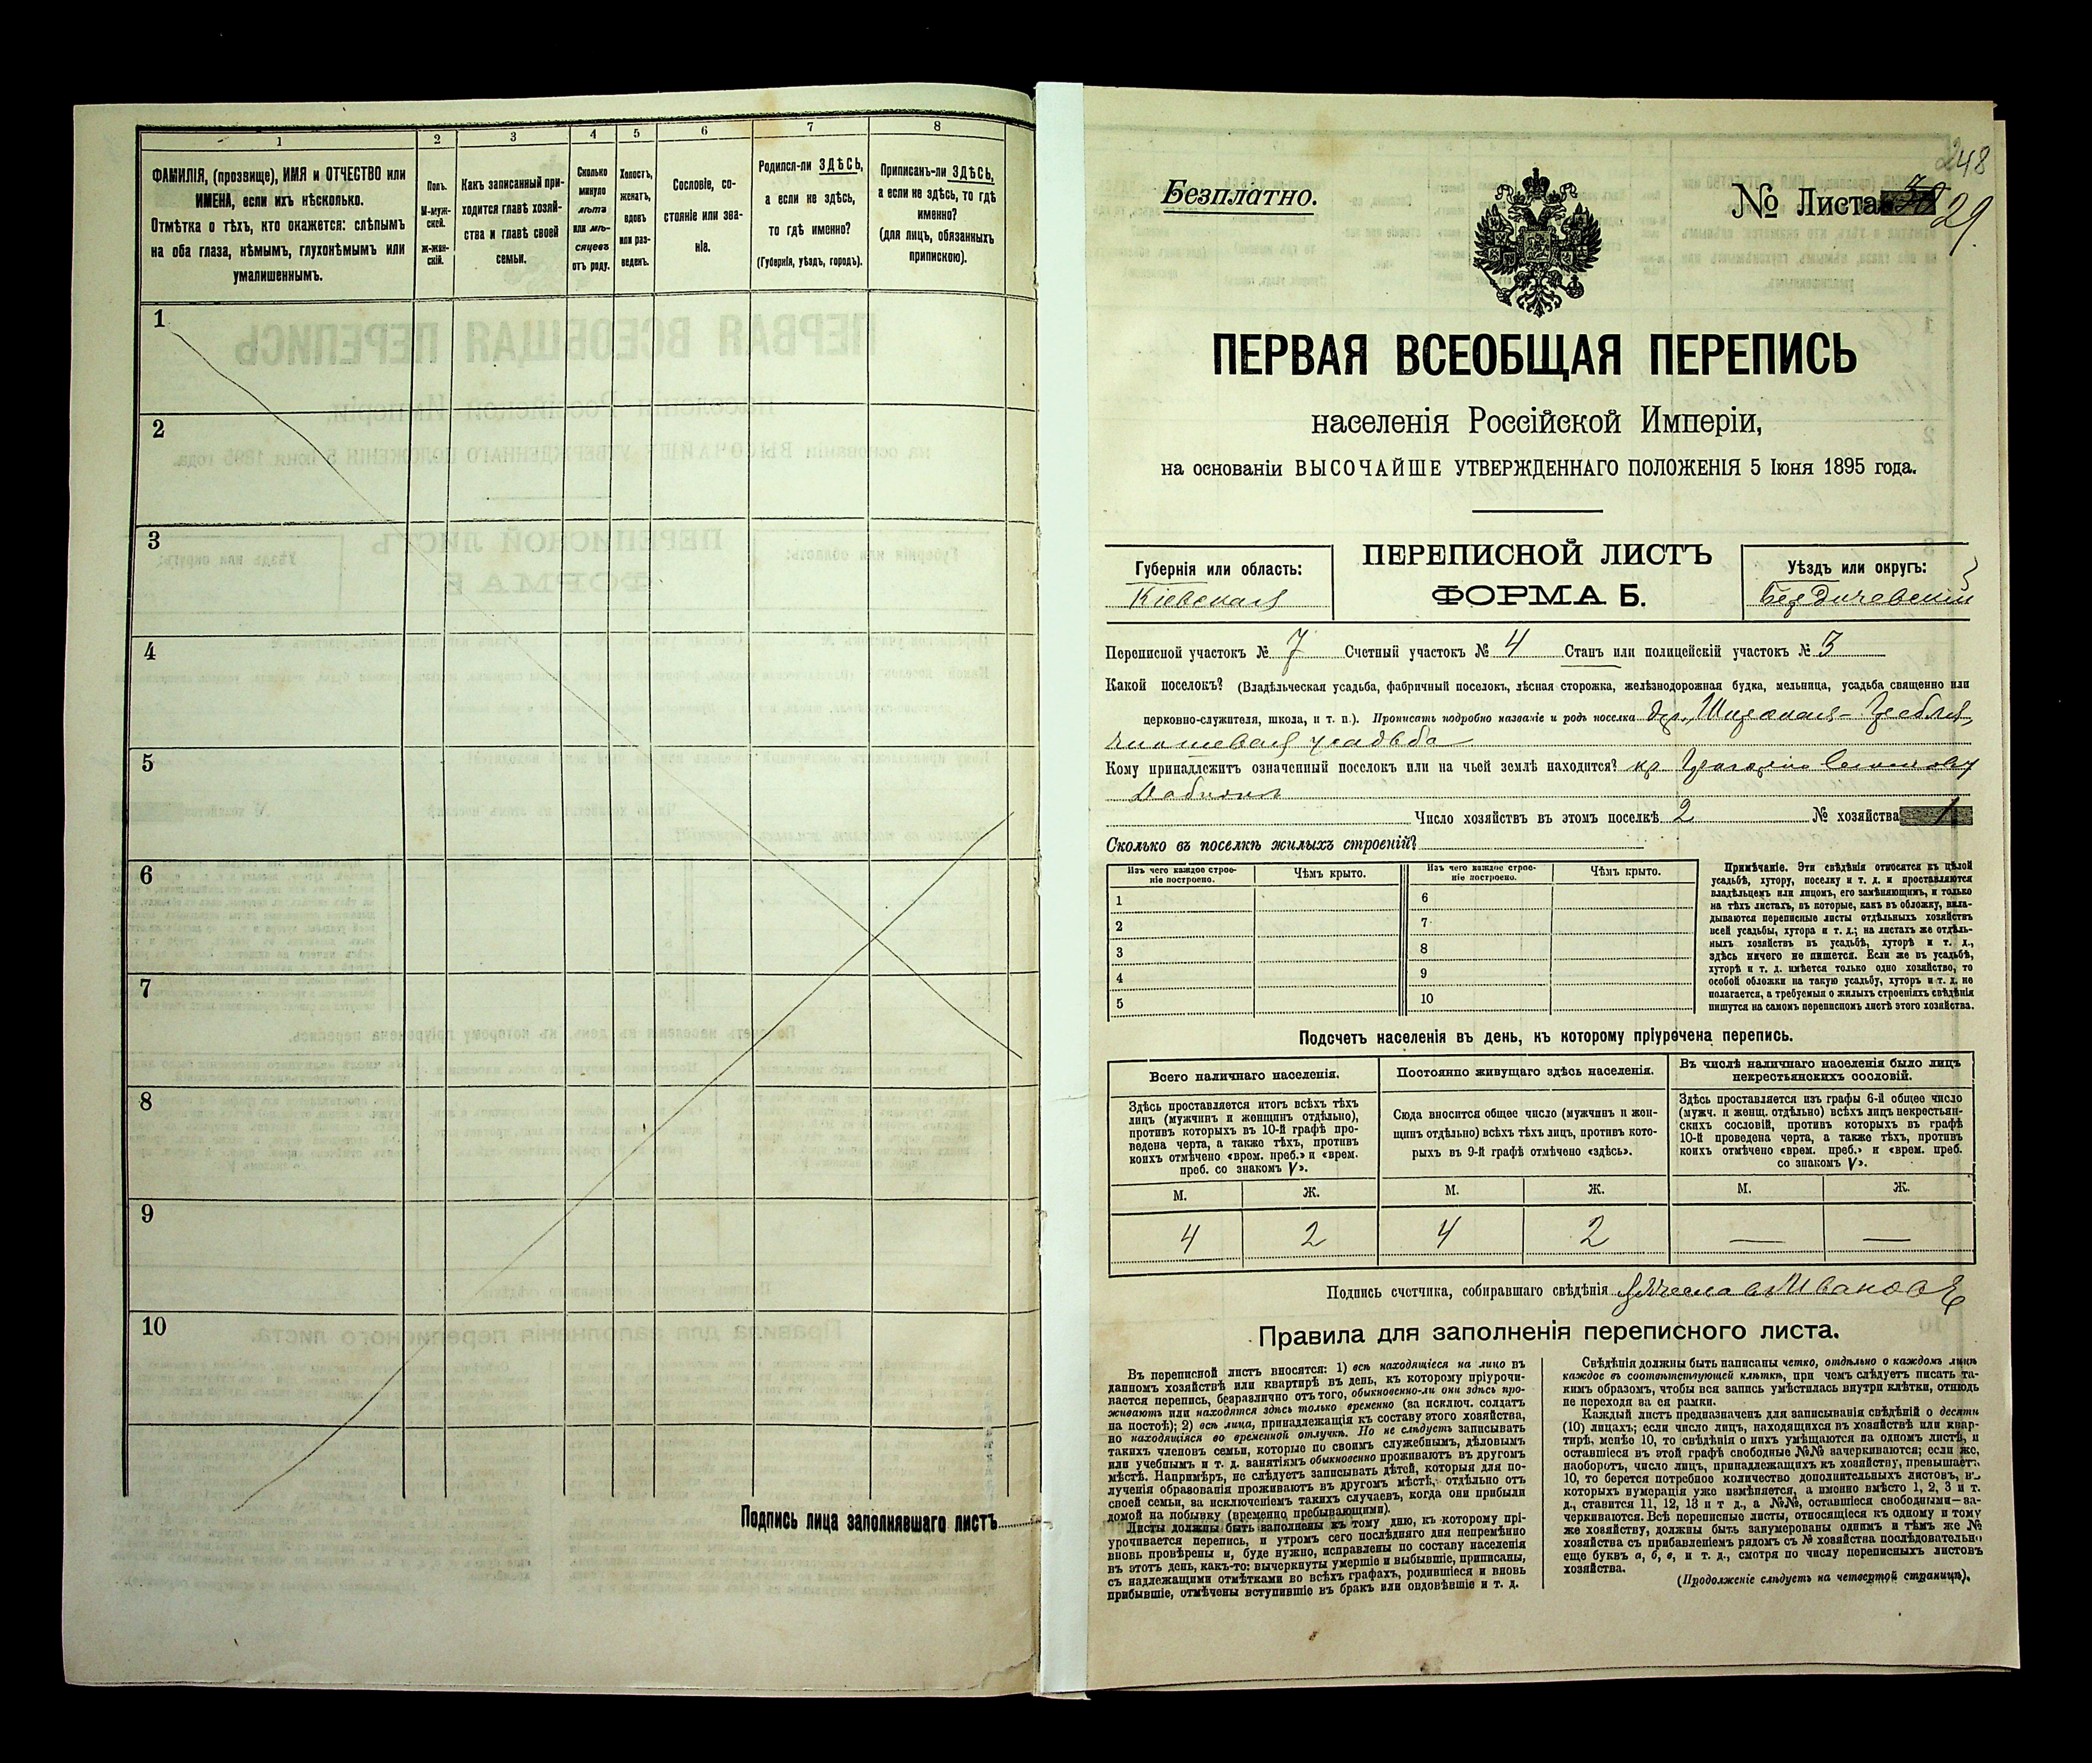 1
2
3
4
5
6
7
8
ФАМИЛІЯ, (прозвище), ИМЯ и ОТЧЕСТВО или
ИМЕНА, если ихъ нѣсколько.
Отмѣтка о тѣхъ, кто окажется: слѣпымъ
на оба глаза, нѣмымъ, глухонѣмымъ или
умалишеннымъ.
Полъ.
М-муж-
ской.
ж-жен-
скій.
Какъ записанный при-
ходится главѣ хозяй-
ства и главѣ своей
семьи.
Сколько
минуло
лѣтъ
или мѣ-
сяцевъ
отъ роду.
Холостъ,
женатъ,
вдовъ
или раз-
веденъ.
Сословіе, со-
стояніе или зва-
ніе.
Родился-ли ЗДѢСЬ,
а если не здѣсь,
то гдѣ именно?
(Губернія, уѣздъ, городъ).
Приписанъ-ли ЗДѢСЬ,
а если не здѣсь, то гдѣ
именно?
(для лицъ, обязанныхъ
припискою).
1
2
3
4
5
6
7
8
9
10
Подпись лица заполнявшаго листъ
248
Безплатно.
№ Листа 29
ПЕРВАЯ ВСЕОБЩАЯ ПЕРЕПИСЬ
населенія Россійской Имперіи,
на основаніи ВЫСОЧАЙШЕ УТВЕРЖДЕННАГО ПОЛОЖЕНІЯ 5 Іюня 1895 года.
Губернія или область:
Кіевская
ПЕРЕПИСНОЙ ЛИСТЪ
ФОРМА Б.
Уѣздъ или округъ:
Бердичевскій
Переписной участокъ № 7 Счетный участокъ № 4 Станъ или полицейскій участокъ № 3
Какой поселокъ? (Владѣльческая усадьба, фабричный поселокъ, лѣсная сторожка, желѣзнодорожная будка, мельница, усадьба священно или
церковно-служителя, школа, и т. п.). Прописать подробно названіе и родъ поселка дер. Широкая-Гребля,
усадьба
Кому принадлежитъ означенный поселокъ или на чьей землѣ находится? кр.
Число хозяйствъ въ этомъ поселкѣ 2 № хозяйства 1
Сколько въ поселкѣ жилыхъ строеній?
Изъ чего каждое строе-
ніе построено.
Чѣмъ крыто.
Изъ чего каждое строе-
ніе построено.
Чѣмъ крыто.
1
2
3
4
5
6
7
8
9
10
Примѣчаніе. Эти свѣдѣнія относятся къ цѣлой
усадьбѣ, хутору, поселку и т. д. и проставляются
владѣльцемъ или лицомъ, его замѣняющимъ, и только
на тѣхъ листахъ, въ которые, какъ въ обложку, вкла-
дываются переписные листы отдѣльныхъ хозяйствъ
всей усадьбы, хутора и т. д.; на листахъ же отдѣль-
ныхъ хозяйствъ въ усадьбѣ, хуторѣ и т. д.,
здѣсь ничего не пишется. Если же въ усадьбѣ,
хуторѣ и т. д. имѣется только одно хозяйство, то
особой обложки на такую усадьбу, хуторъ и т. д. не
полагается, а требуемыя о жилыхъ строеніяхъ свѣдѣнія
пишутся на самомъ переписномъ листѣ этого хозяйства.
Подсчетъ населенія въ день, къ которому пріурочена перепись.
Всего наличнаго населенія.
Постоянно живущаго здѣсь населенія.
Въ числѣ наличнаго населенія было лицъ
некрестьянскихъ сословій.
Здѣсь проставляется итогъ всѣхъ тѣхъ
лицъ (мужчинъ и женщинъ отдѣльно),
противъ которыхъ въ 10-й графѣ про-
ведена черта, а также тѣхъ, противъ
коихъ отмѣчено «врем. преб.» и «врем.
преб. со знакомъ V».
Сюда вносится общее число (мужчинъ и жен-
щинъ отдѣльно) всѣхъ тѣхъ лицъ, противъ кото-
рыхъ въ 9-й графѣ отмѣчено «здѣсь».
Здѣсь проставляется изъ графы 6-й общее число
(мужч. и женщ. отдѣльно) всѣхъ лицъ некрестьян-
скихъ сословій, противъ которыхъ въ графѣ
10-й проведена черта, а также тѣхъ, противъ
коихъ отмѣчено «врем. преб.» и «врем. преб.
со знакомъ V».
М. Ж. М. Ж. М. Ж.
4 2 4 2 — —
Подпись счетчика, собиравшаго свѣдѣнія
Правила для заполненія переписного листа.
Въ переписной листъ вносятся: 1) всѣ находящіеся на лицо въ
данномъ хозяйствѣ или квартирѣ въ день, къ которому пріурочи-
вается перепись, безразлично отъ того, обыкновенно-ли они здѣсь про-
живаютъ или находятся здѣсь только временно (за исключ. солдатъ
на постоѣ); 2) всѣ лица, принадлежащія къ составу этого хозяйства,
но находящіяся во временной отлучкѣ. Но не слѣдуетъ записывать
такихъ членовъ семьи, которые по своимъ служебнымъ, дѣловымъ
или учебнымъ и т. д. занятіямъ обыкновенно проживаютъ въ другомъ
мѣстѣ. Напримѣръ, не слѣдуетъ записывать дѣтей, которыя для по-
лученія образованія проживаютъ въ другомъ мѣстѣ, отдѣльно отъ
своей семьи, за исключеніемъ такихъ случаевъ, когда они прибыли
домой на побывку (временно пребывающими).
Листы должны быть заполнены къ тому дню, къ которому прі-
урочивается перепись, и утромъ сего послѣдняго дня непремѣнно
вновь провѣрены и, буде нужно, исправлены по составу населенія
въ этотъ день, какъ-то: вычеркнуты умершіе и выбывшіе, приписаны,
съ надлежащими отмѣтками во всѣхъ графахъ, родившіеся и вновь
прибывшіе, отмѣчены вступившіе въ бракъ или овдовѣвшіе и т. д.
Свѣдѣнія должны быть написаны четко, отдѣльно о каждомъ лицѣ
каждое въ соотвѣтствующей клѣткѣ, при чемъ слѣдуетъ писать та-
кимъ образомъ, чтобы вся запись умѣстилась внутри клѣтки, отнюдь
не переходя за ея рамки.
Каждый листъ предназначенъ для записыванія свѣдѣній о десяти
(10) лицахъ; если число лицъ, находящихся въ хозяйствѣ или квар-
тирѣ, менѣе 10, то свѣдѣнія о нихъ умѣщаются на одномъ листѣ, и
оставшіеся въ этой графѣ свободные №№ зачеркиваются; если же,
наоборотъ, число лицъ, принадлежащихъ къ хозяйству, превышаетъ
10, то берется потребное количество дополнительныхъ листовъ, въ
которыхъ нумерація уже измѣняется, а именно вмѣсто 1, 2, 3 и т.
д., ставится 11, 12, 13 и т д., а №№, оставшіеся свободными—за-
черкиваются. Всѣ переписные листы, относящіеся къ одному и тому
же хозяйству, должны быть занумерованы однимъ и тѣмъ же №
хозяйства съ прибавленіемъ рядомъ съ № хозяйства послѣдовательно
еще буквъ а, б, в, и т. д., смотря по числу переписныхъ листовъ
хозяйства.
(Продолженіе слѣдуетъ на четвертой страницѣ).